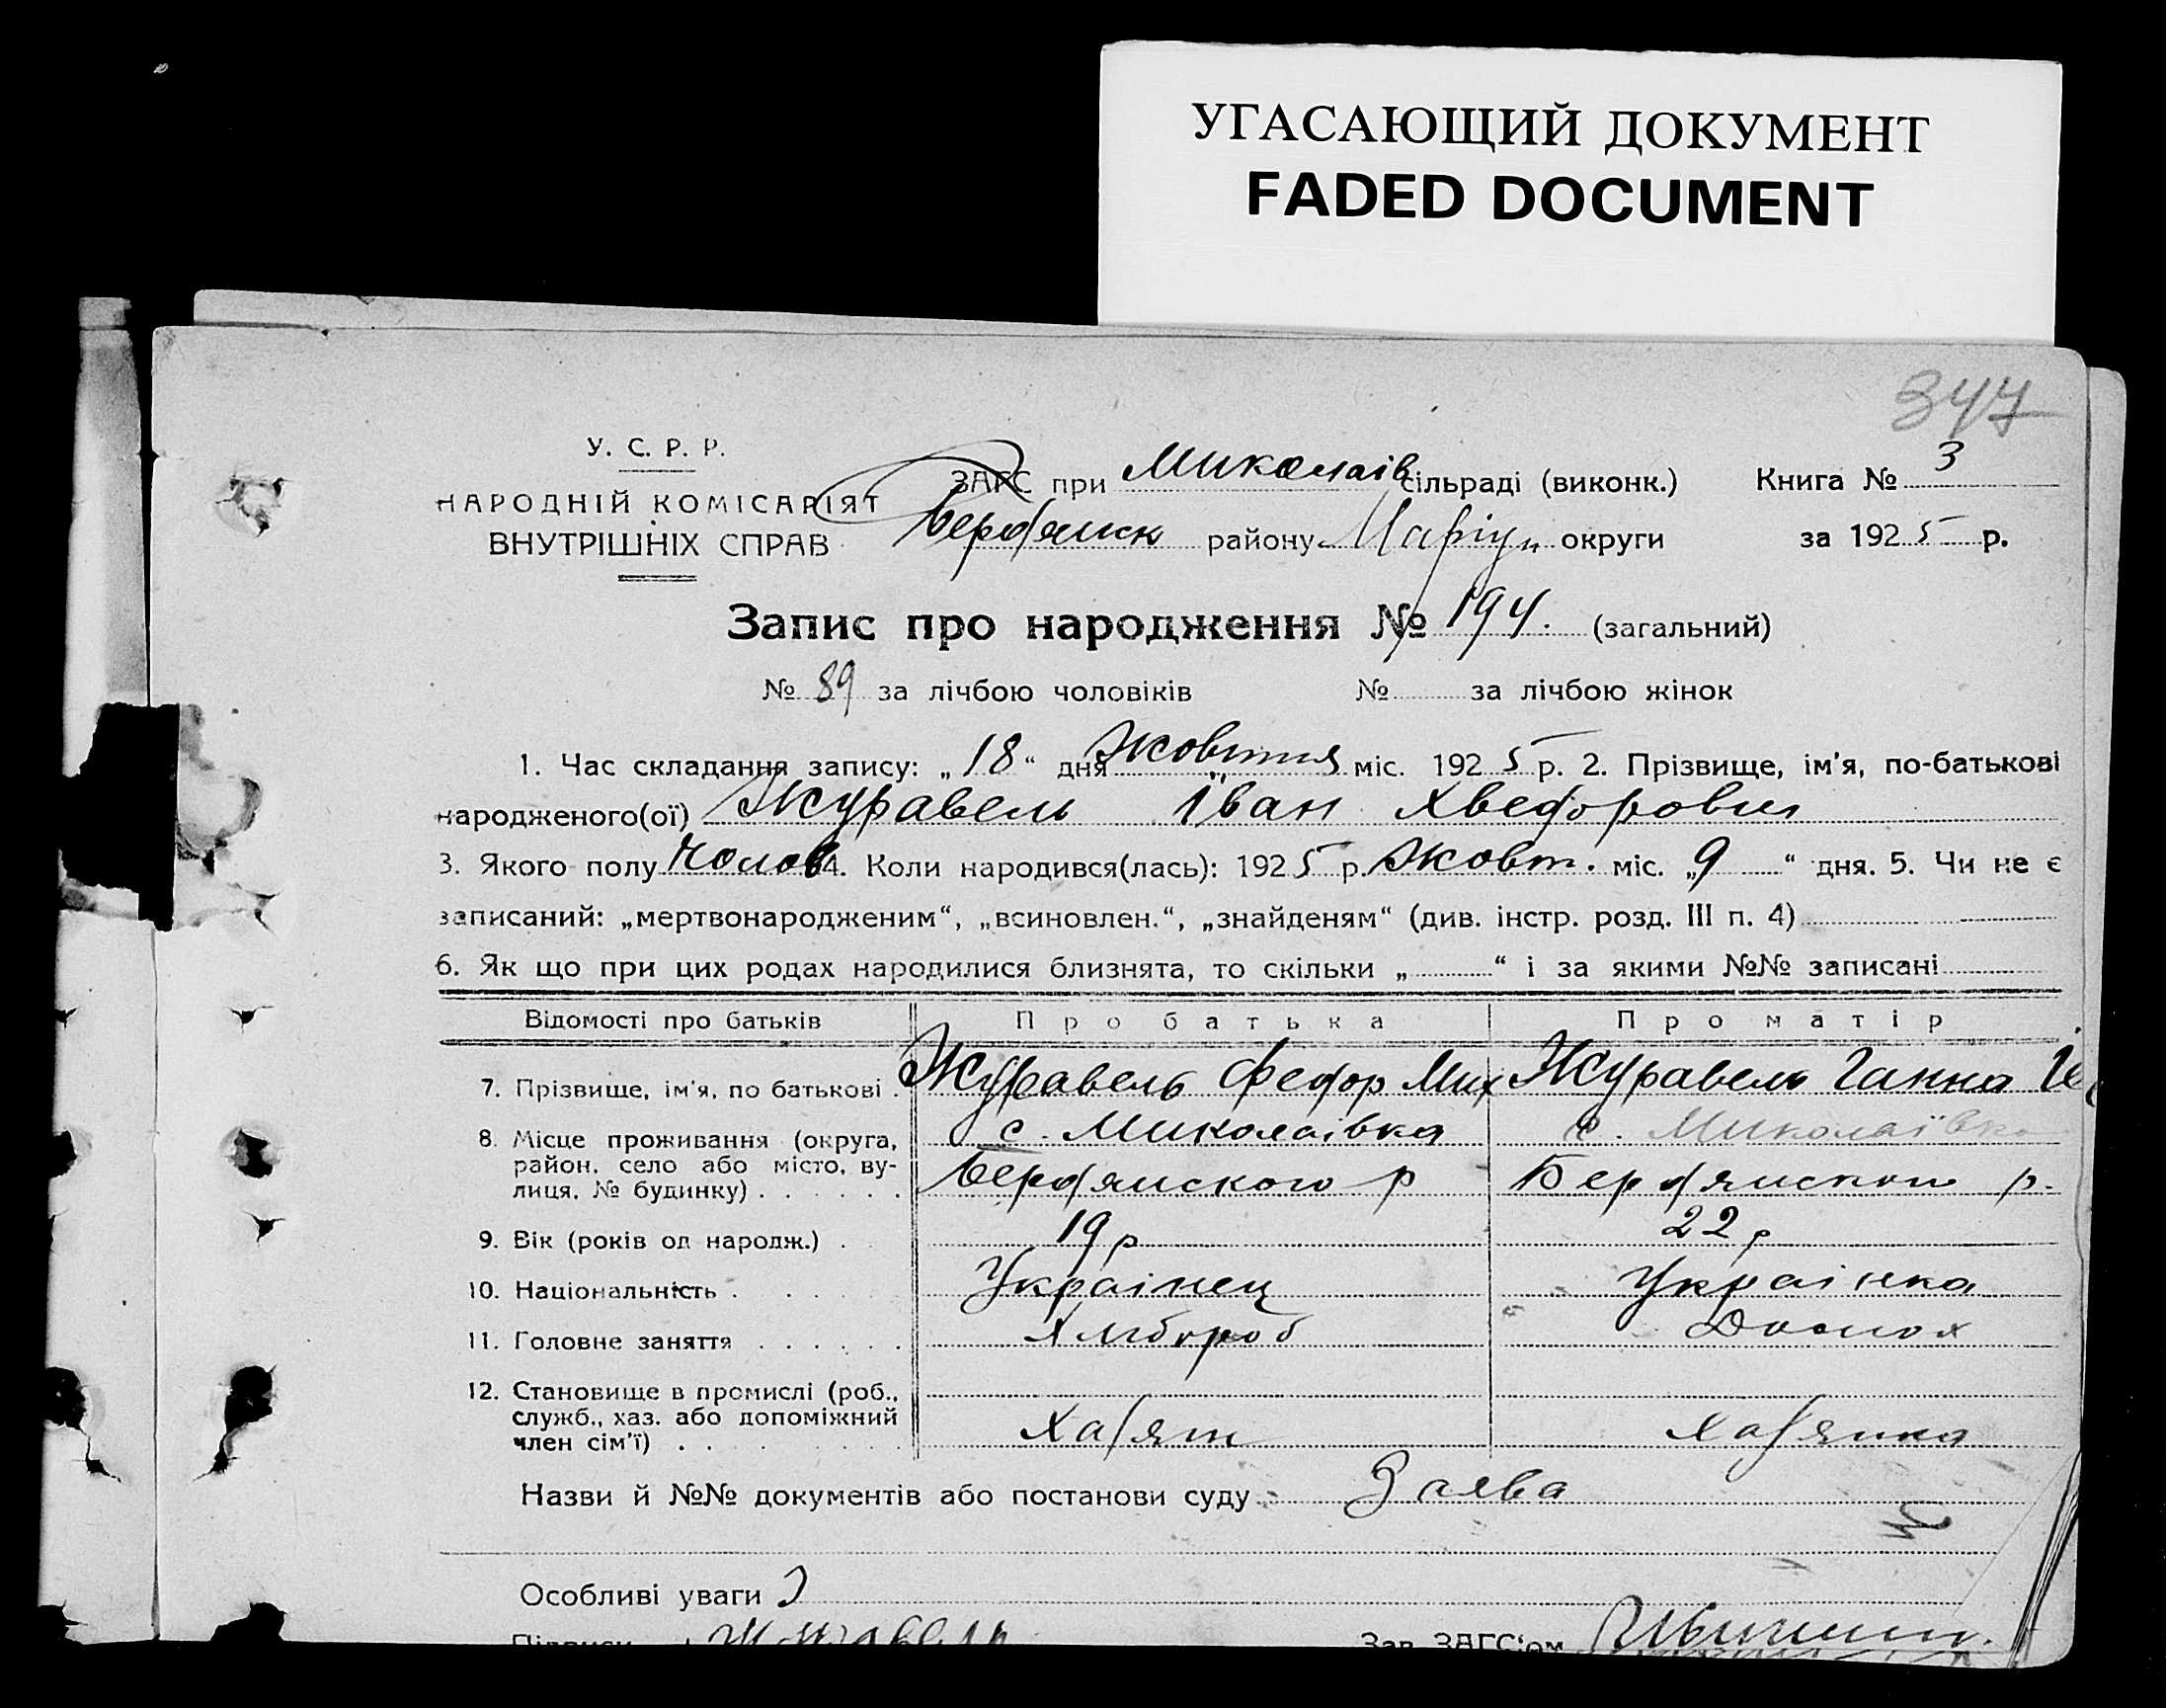 УГАСАЮЩИЙ ДОКУМЕНТ
FADED DOCUMENT
347
У. С. Р. Р.
НАРОДНІЙ КОМІСАРІЯТ
ВНУТРІШНІХ СПРАВ
ЗАГС при Миколаїв сільраді (виконк.) Книга № 3
Бердянськ району Маріуп округи за 1925 р.
Запис про народження № 194. (загальний)
№ 89 за лічбою чоловіків № за лічбою жінок
1. Час складання запису: „18“ дня Жовтня міс. 1925 р. 2. Прізвище, ім'я, по-батькові
народженого(ої) Журавель Іван Хведорович
3. Якого полу Чолов 4. Коли народився(лась): 1925 р. Жовт. міс. „9“ дня. 5. Чи не є
записаний: „мертвонародженим“, „всиновлен.“, „знайденям“ (див. інстр. розд. III п. 4)
6. Як що при цих родах народилися близнята, то скільки „ “ і за якими №№ записані
Відомості про батьків Про батька Про матір
7. Прізвище, ім'я, по батькові . Журавель Федор Мих Журавель Ганна
8. Місце проживання (округа, с. Миколаівка с. Миколаївка
район, село або місто, ву- Бердянского р Бердянского р.
лиця, № будинку) . . . . . .
9. Вік (років од народж.) . 19 р 22 р
10. Національність . . . . Украінец Украінка
11. Головне заняття . . . . . . Хлібороб Домох
12. Становище в промислі (роб.,
служб., хаз. або допоміжний
член сім'ї) . . . . . . Хазяін Хазяйка
Назви й №№ документів або постанови суду Заява
Особливі уваги
Підписи Журавель Зав. ЗАГС'ом